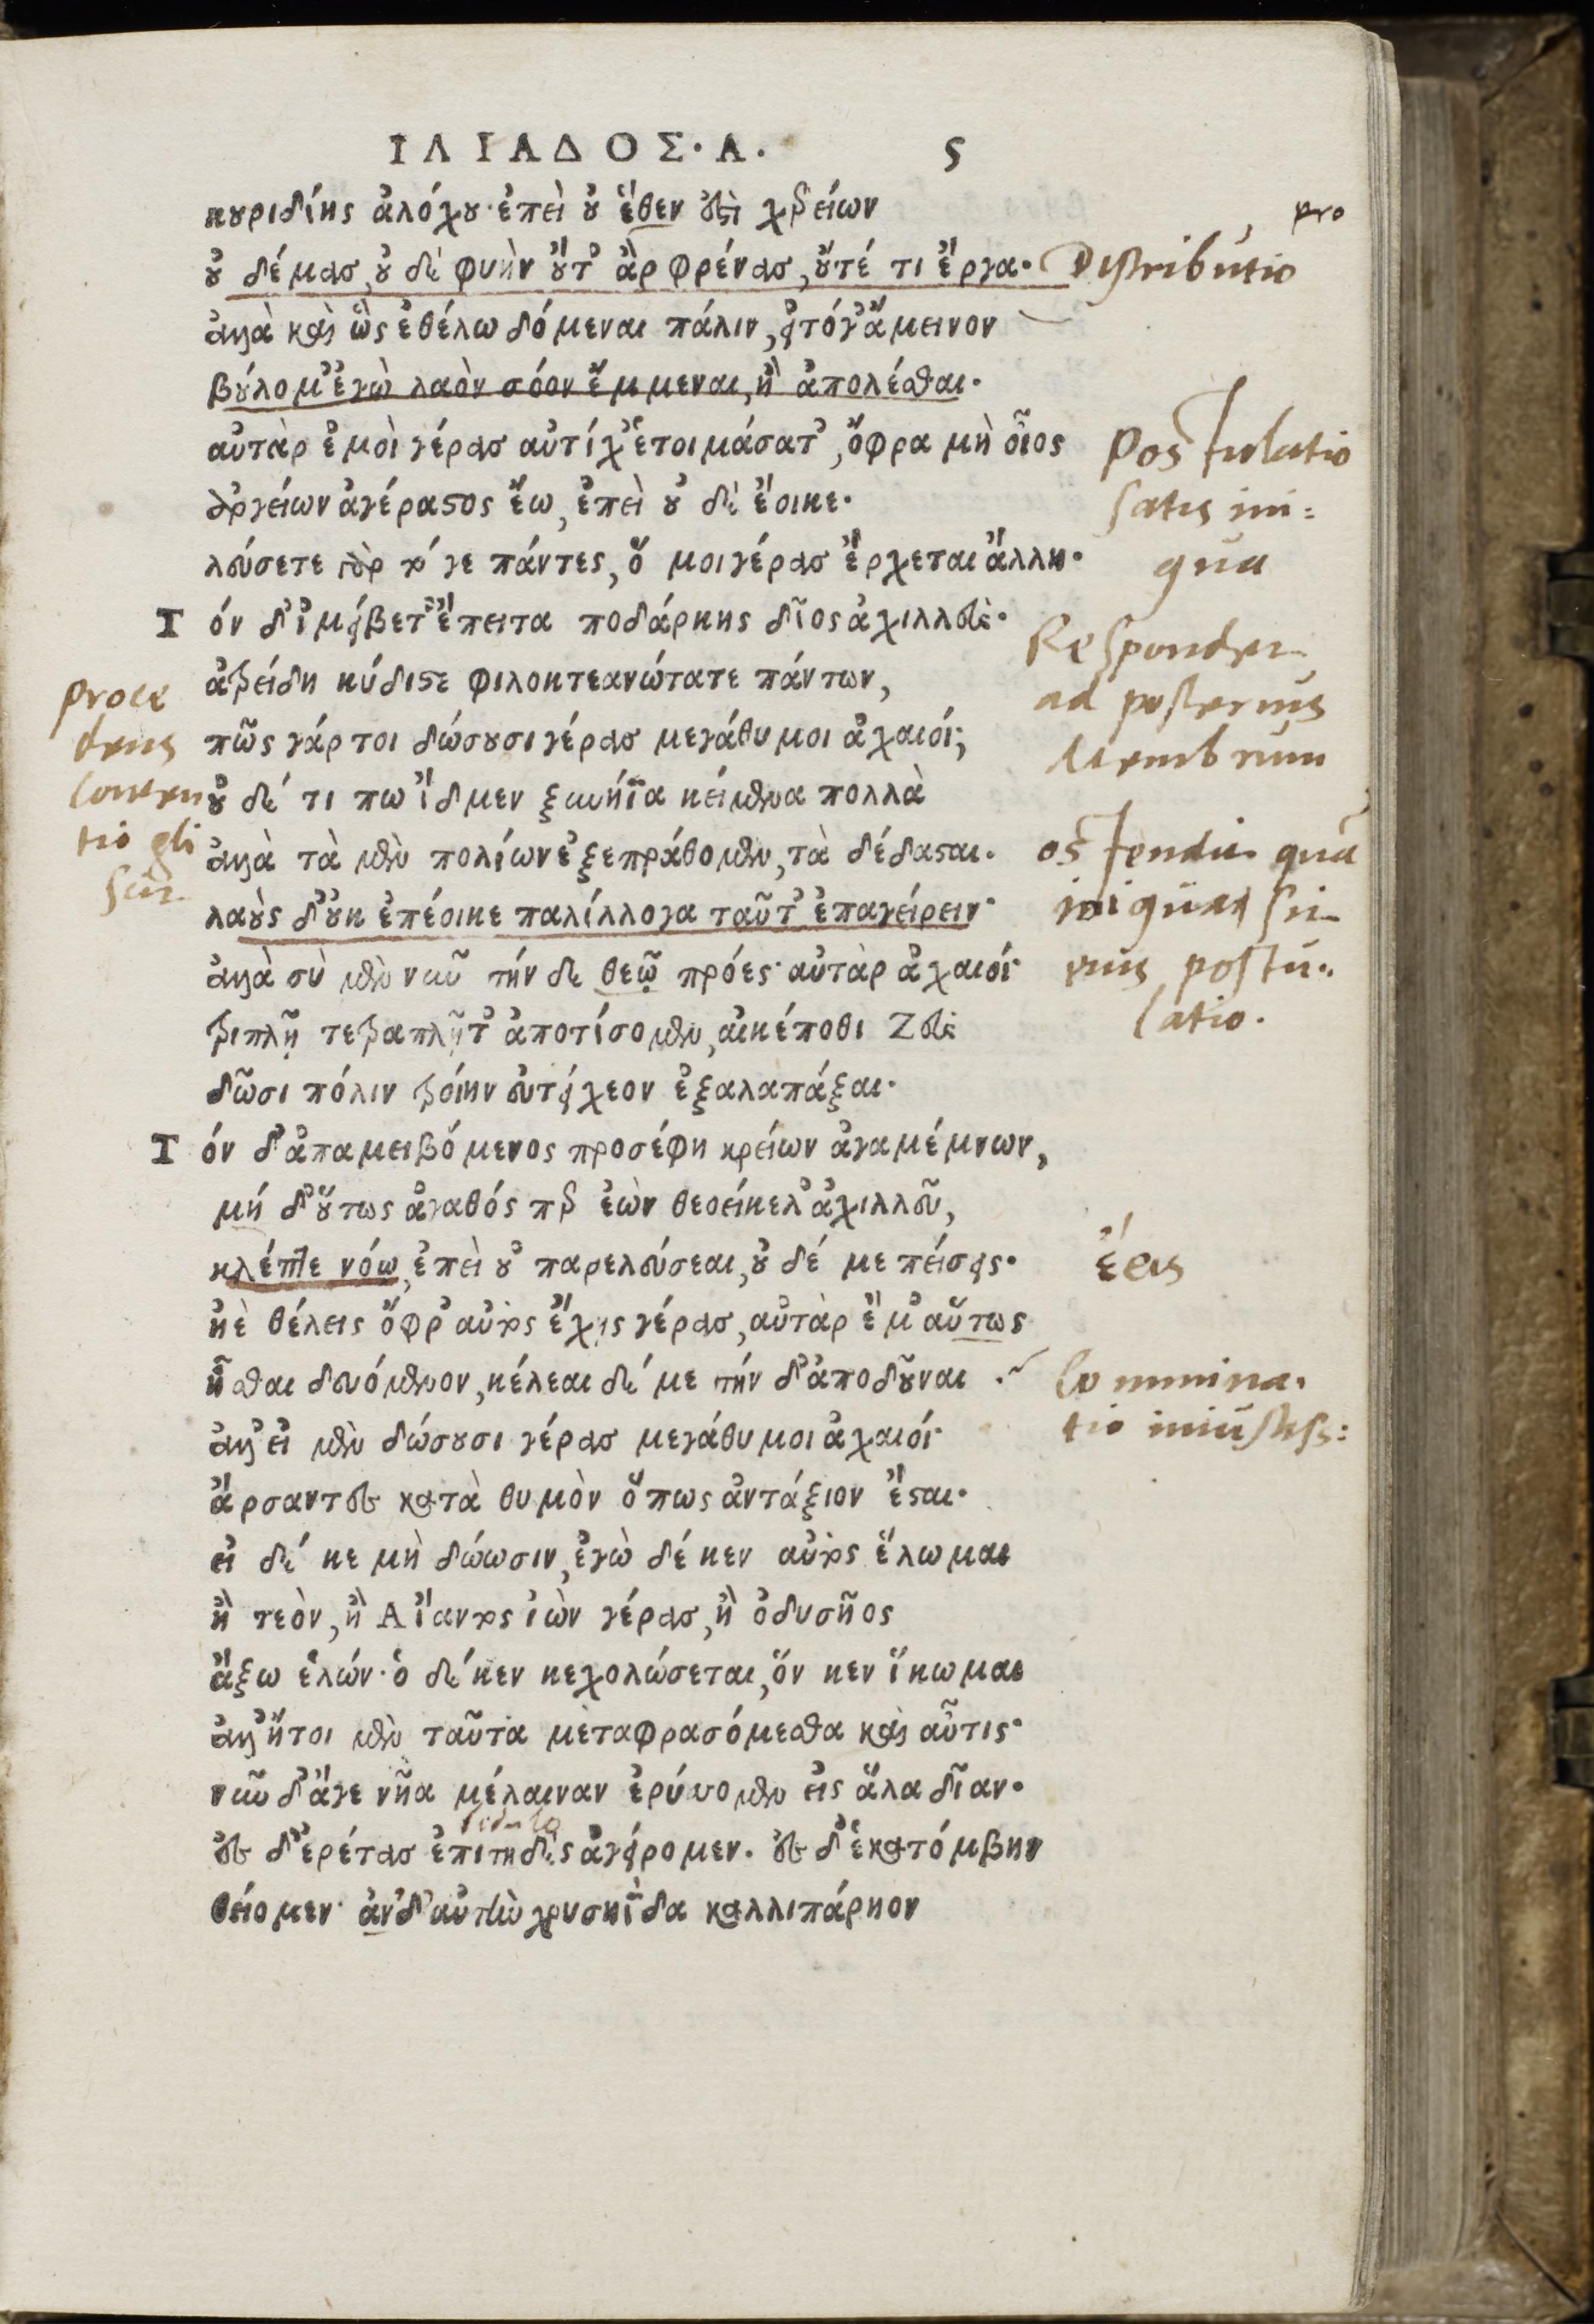 ΙΛΙΑΔΟΣ·Α. 5
κουριδίης ἀλόχου· ἐπεὶ οὔ ἕθεν ἐστὶ χερείων
pro
οὐ δέμας, οὐδὲ φυὴν οὔτ' ἂρ φρένας, οὔτέ τι ἔργα· Distributio
ἀλλὰ καὶ ὧς ἐθέλω δόμεναι πάλιν, εἰ τόγ' ἄμεινον
βούλομ' ἐγὼ λαὸν σόον ἔμμεναι, ἢ ἀπολέσθαι.
αὐτὰρ ἐμοὶ γέρας αὐτίχ' ἑτοιμάσατ', ὄφρα μὴ οἶος Postulatio
ἀργείων ἀγέραστος ἔω, ἐπεὶ οὐδὲ ἔοικε. satis ini=
λεύσετε γὰρ τό γε πάντες, ὅ μοι γέρας ἔρχεται ἄλλη. qua
Τόν δ' ἠμείβετ' ἔπειτα ποδάρκης δῖος ἀχιλλεύς.
Respondet
ἀτρείδη κύδιστε φιλοκτεανώτατε πάντων,
ad posterius
πῶς γάρ τοι δώσουσι γέρας μεγάθυμοι ἀχαιοί;
membrum
οὐδέ τι πω ἴδμεν ξυνήϊα κείμενα πολλὰ
ἀλλὰ τὰ μὲν πολίων ἐξεπράθομεν, τὰ δέδασται. ostendit quā
λαοὺς δ' οὐκ ἐπέοικε παλίλλογα ταῦτ' ἐπαγείρειν· iniqua sit
ἀλλὰ σὺ μὲν νῦν τήν δε θεῷ πρόες· αὐτὰρ ἀχαιοί eius postu-
τριπλῇ τετραπλῇτ' ἀποτίσομεν, αἴ κέ ποθι Ζεὺς latio.
δῶσι πόλιν τροίην εὐτείχεον ἐξαλαπάξαι.
Τόν δ' ἀπαμειβόμενος προσέφη κρείων ἀγαμέμνων,
μή δ' οὕτως ἀγαθός περ ἐὼν θεοείκελ' ἀχιλλεῦ,
κλέπτε νόῳ, ἐπεὶ οὐ παρελεύσεαι, οὐδέ με πείσεις. ἔρις
ἢ ἐθέλεις ὄφρ' αὐτὸς ἔχῃς γέρας, αὐτὰρ ἔμ' αὔτως
ἧσθαι δευόμενον, κέλεαι δέ με τήν δ' ἀποδοῦναι Commina-
ἀλλ' εἰ μὲν δώσουσι γέρας μεγάθυμοι ἀχαιοί tio
ἄρσαντες κατὰ θυμὸν ὅπως ἀντάξιον ἔσται.
εἰ δέ κε μὴ δώωσιν, ἐγὼ δέ κεν αὐτὸς ἕλωμαι
ἢ τεὸν, ἢ Αἴαντος ἰὼν γέρας, ἢ ὀδυσῆος
ἄξω ἑλών· ὁ δέ κεν κεχολώσεται, ὅν κεν ἵκωμαι
ἀλλ' ἤτοι μὲν ταῦτα μεταφρασόμεσθα καὶ αὖτις·
νῦν δ' ἄγε νῆα μέλαιναν ἐρύσσομεν εἰς ἅλα δῖαν.
ἐς δ' ἐρέτας ἐπιτηδὲς ἀγείρομεν. ἐς δ' ἑκατόμβην
θείομεν· ἀν δ' αὐτὴν χρυσηΐδα καλλιπάρῃον